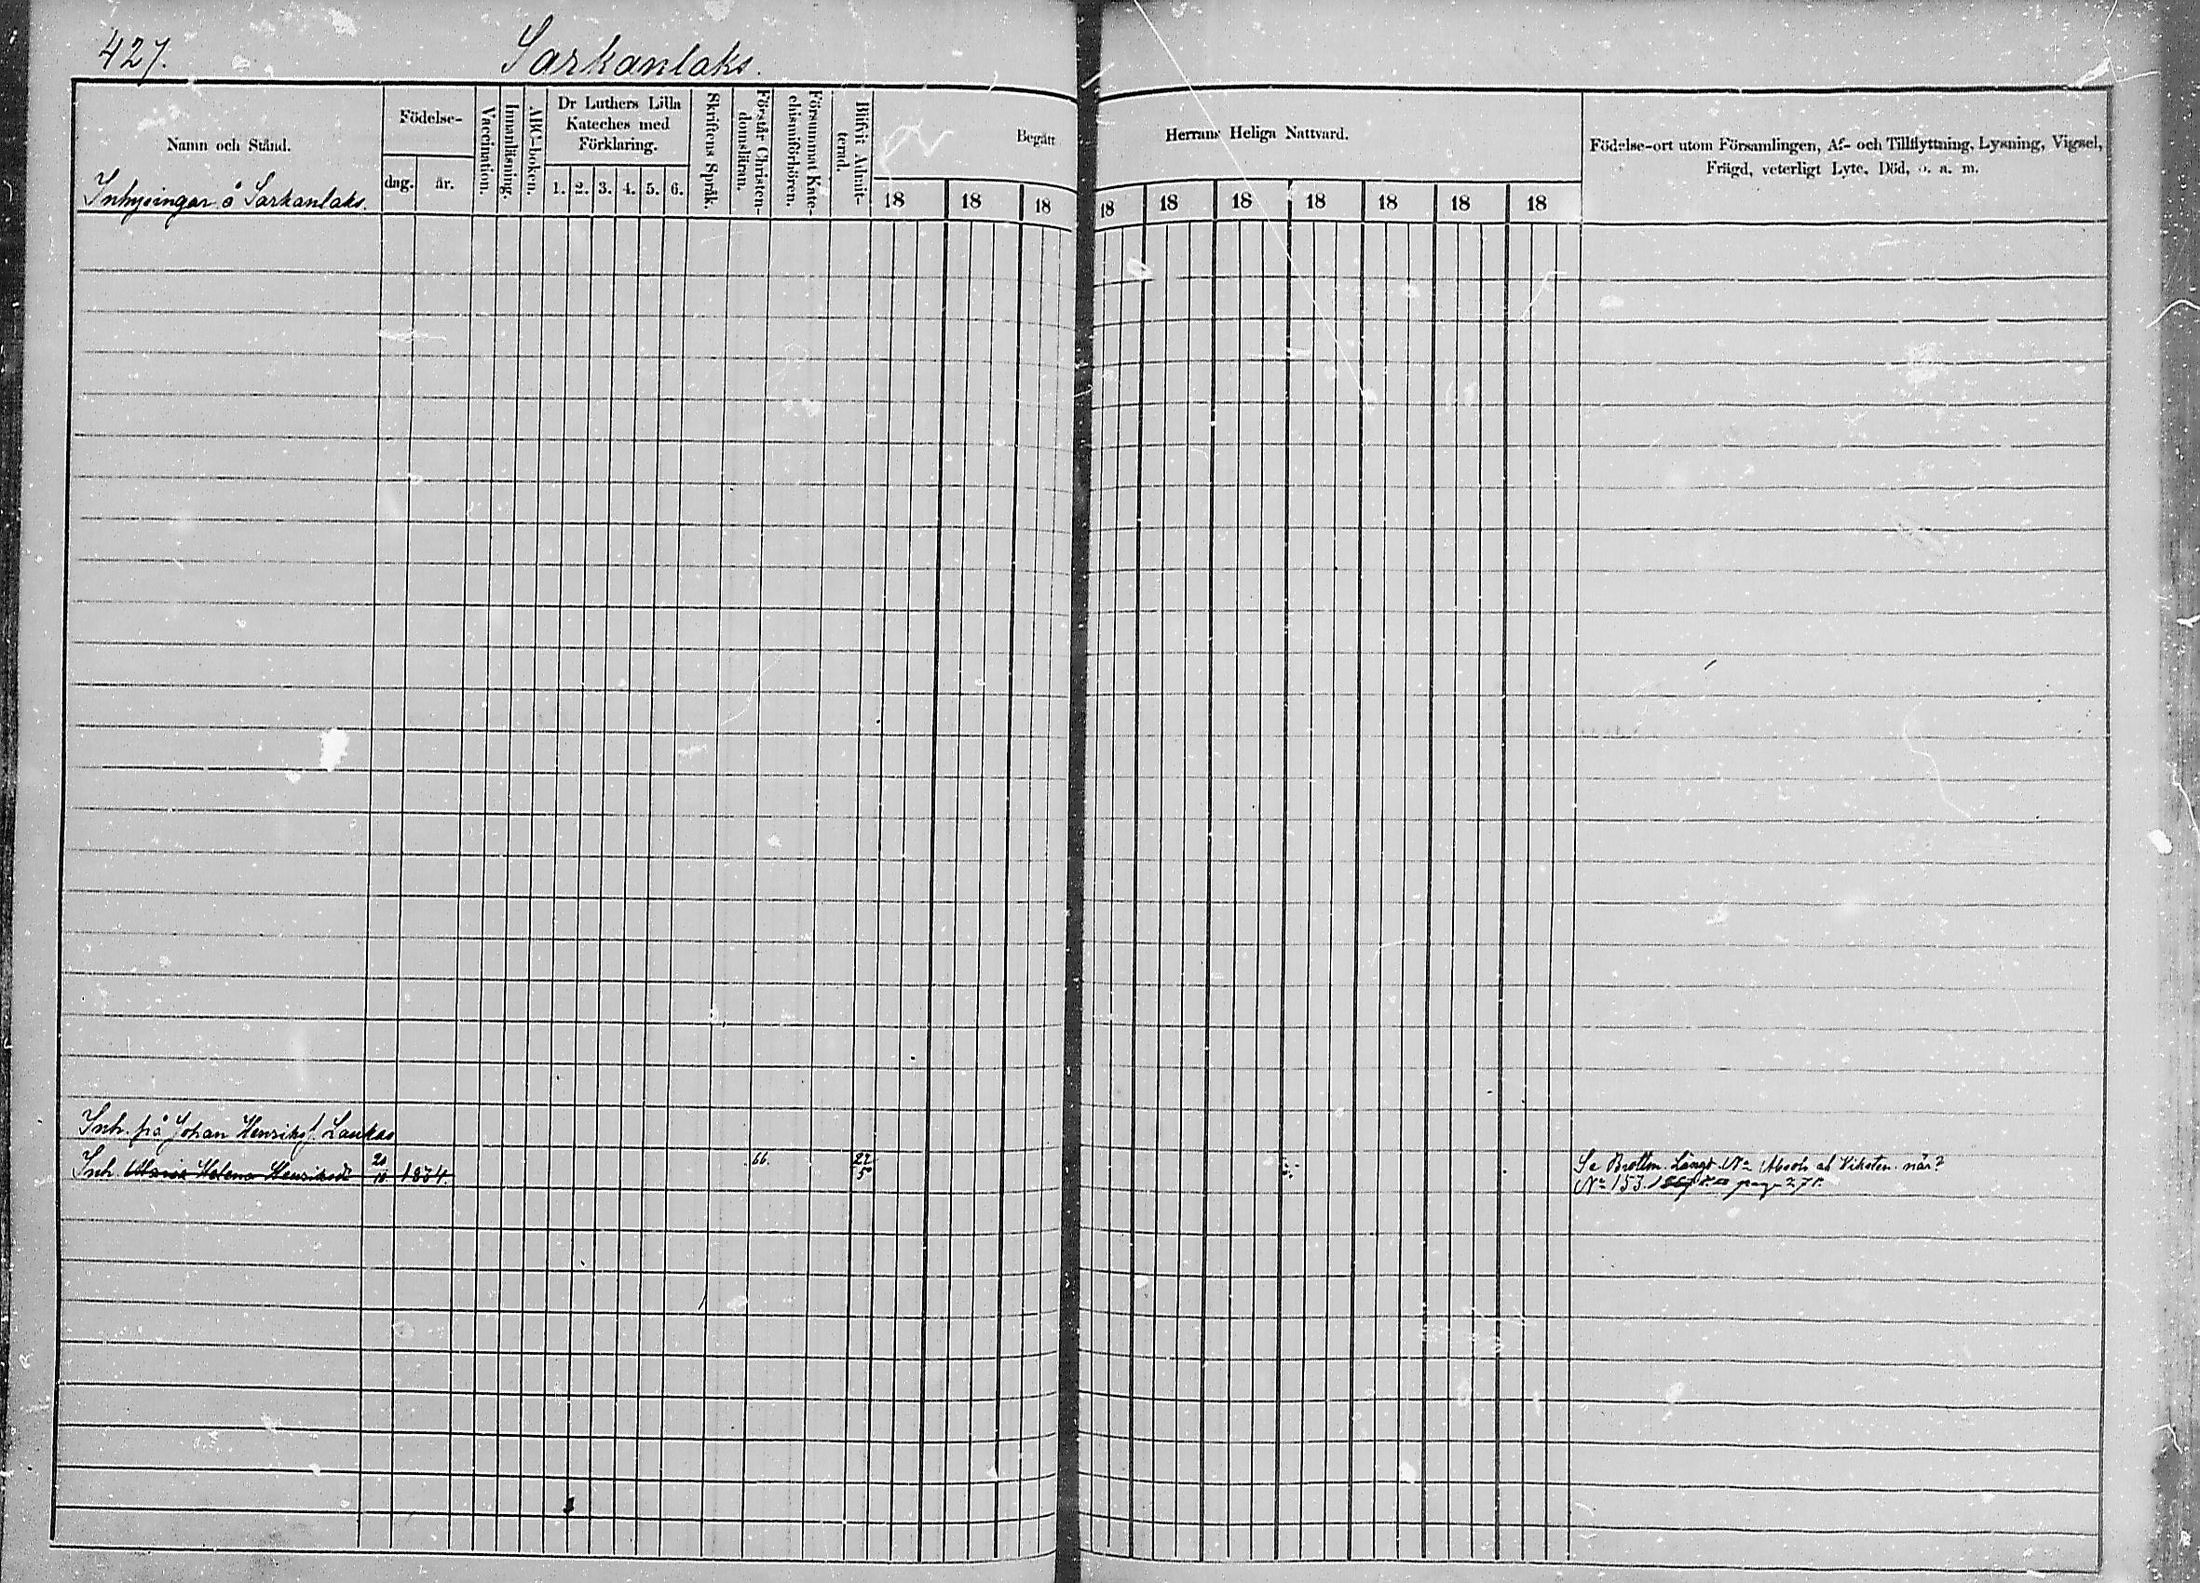 427.
Sarkanlaks.
Namn och Stånd.
Födelse-
dag. år.
Vaccination.
Innanläsning.
ABC-boken.
Dr Luthers Lilla
Kateches med
Förklaring.
1. 2. 3. 4. 5. 6.
Skriftens Språk.
Förstår Christen-
domsläran.
Försummat Kate-
chismiförhören.
Blifvit Admit-
terad.
Begått
Herrans Heliga Nattvard.
18 18 18 18 18 18 18 18 18 18
Födelse-ort utom Församlingen, Af- och Tillflyttning, Lysning, Vigsel,
Frägd, veterligt Lyte, Död, o. a. m.
Inhysingar å Sarkanlaks.
Inh. på Johan Henriksf. Laukas
Inh. Maria Helena Henriksdr 20/10 1834. 66. 22/5
Se Brottm. Längd. No Absolv. när?
No 153. pag. 271.